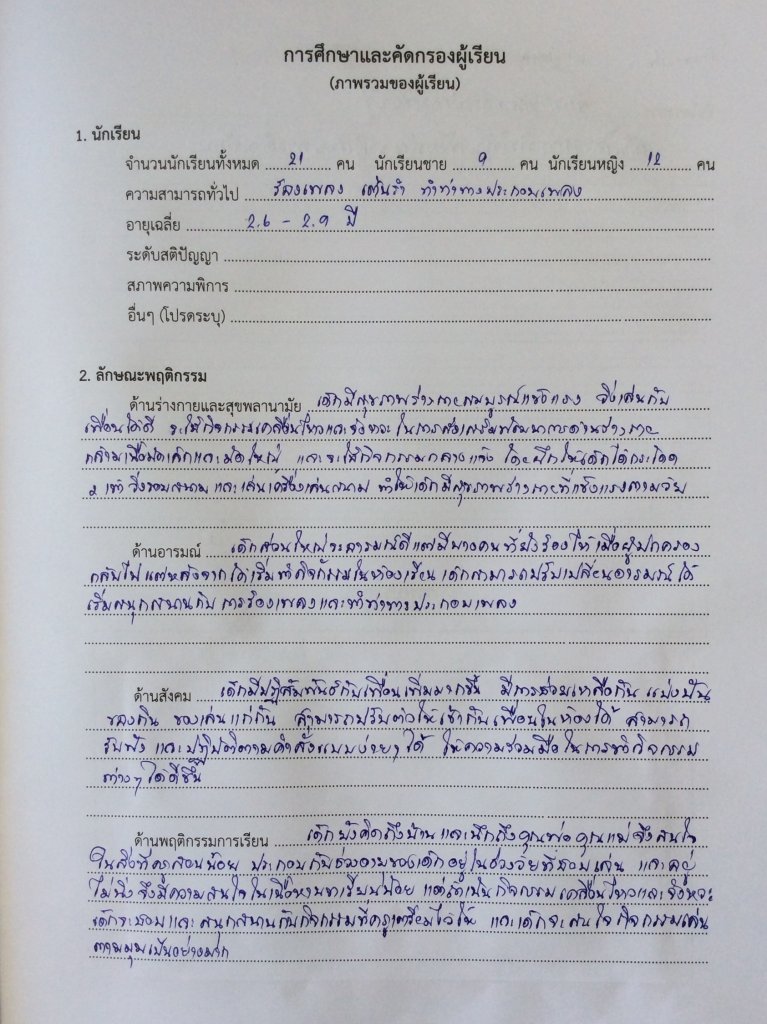 การศึกษาและคัดกรองผู้เรียน
(ภาพรวมของผู้เรียน)
1. นักเรียน
จำนวนนักเรียนทั้งหมด 21 คน นักเรียนชาย 9 คน นักเรียนหญิง 12 คน
ความสามารถทั่วไป ร้องเพลง เต้นรำ ทำท่าทางประกอบเพลง
อายุเฉลี่ย 2.6 - 2.9 ปี
ระดับสติปัญญา
สภาพความพิการ
อื่นๆ (โปรดระบุ)
2. ลักษณะพฤติกรรม
ด้านร่างกายและสุขพลานามัย เด็กมีสุขภาพร่างกายสมบูรณ์แข็งแรง วิ่งเล่นกับ
เพื่อนได้ดี จะให้กิจกรรมเคลื่อนไหวและจังหวะ ในการส่งเสริมพัฒนาการด้านร่างกาย
กล้ามเนื้อมัดเล็กและมัดใหญ่ และจะให้กิจกรรมกลางแจ้ง โดยฝึกให้เด็กได้กระโดด
2 เท้า วิ่งรอบสนาม และเล่นเครื่องเล่นสนาม ทำให้เด็กมีสุขภาพร่างกายที่แข็งแรงตามวัย
ด้านอารมณ์ เด็กส่วนใหญ่จะอารมณ์ดีแต่มีบางคนที่ยังร้องไห้ เมื่อผู้ปกครอง
กลับไป แต่หลังจากได้เริ่มทำกิจกรรมในห้องเรียน เด็กสามารถปรับเปลี่ยนอารมณ์ได้
เริ่มสนุกสนานกับการร้องเพลงและทำท่าทางประกอบเพลง
ด้านสังคม เด็กมีปฏิสัมพันธ์กับเพื่อนเพิ่มมากขึ้น มีการช่วยเหลือกัน แบ่งปัน
ของกิน ของเล่นแก่กัน สามารถปรับตัวให้เข้ากับเพื่อนในห้องได้ สามารถ
รับฟัง และปฏิบัติตามคำสั่งแบบง่ายๆ ได้ ให้ความร่วมมือในการทำกิจกรรม
ต่างๆ ได้ดีขึ้น
ด้านพฤติกรรมการเรียน เด็กยังคิดถึงบ้าน และนึกถึงคุณพ่อ คุณแม่ จึงสนใจ
ในสิ่งที่ครูสอนน้อย ประกอบกับช่วงอายุของเด็กอยู่ในช่วงวัยที่ชอบเล่น และอยู่
ไม่นิ่ง จึงมีความสนใจในเนื้อหาบทเรียนน้อย แต่ถ้าเป็นกิจกรรมเคลื่อนไหวและจังหวะ
เด็กจะชอบและสนุกสนานกับกิจกรรมที่ครูเตรียมไว้ให้ และเด็กจะสนใจกิจกรรมเล่น
ตามมุมเป็นอย่างมาก